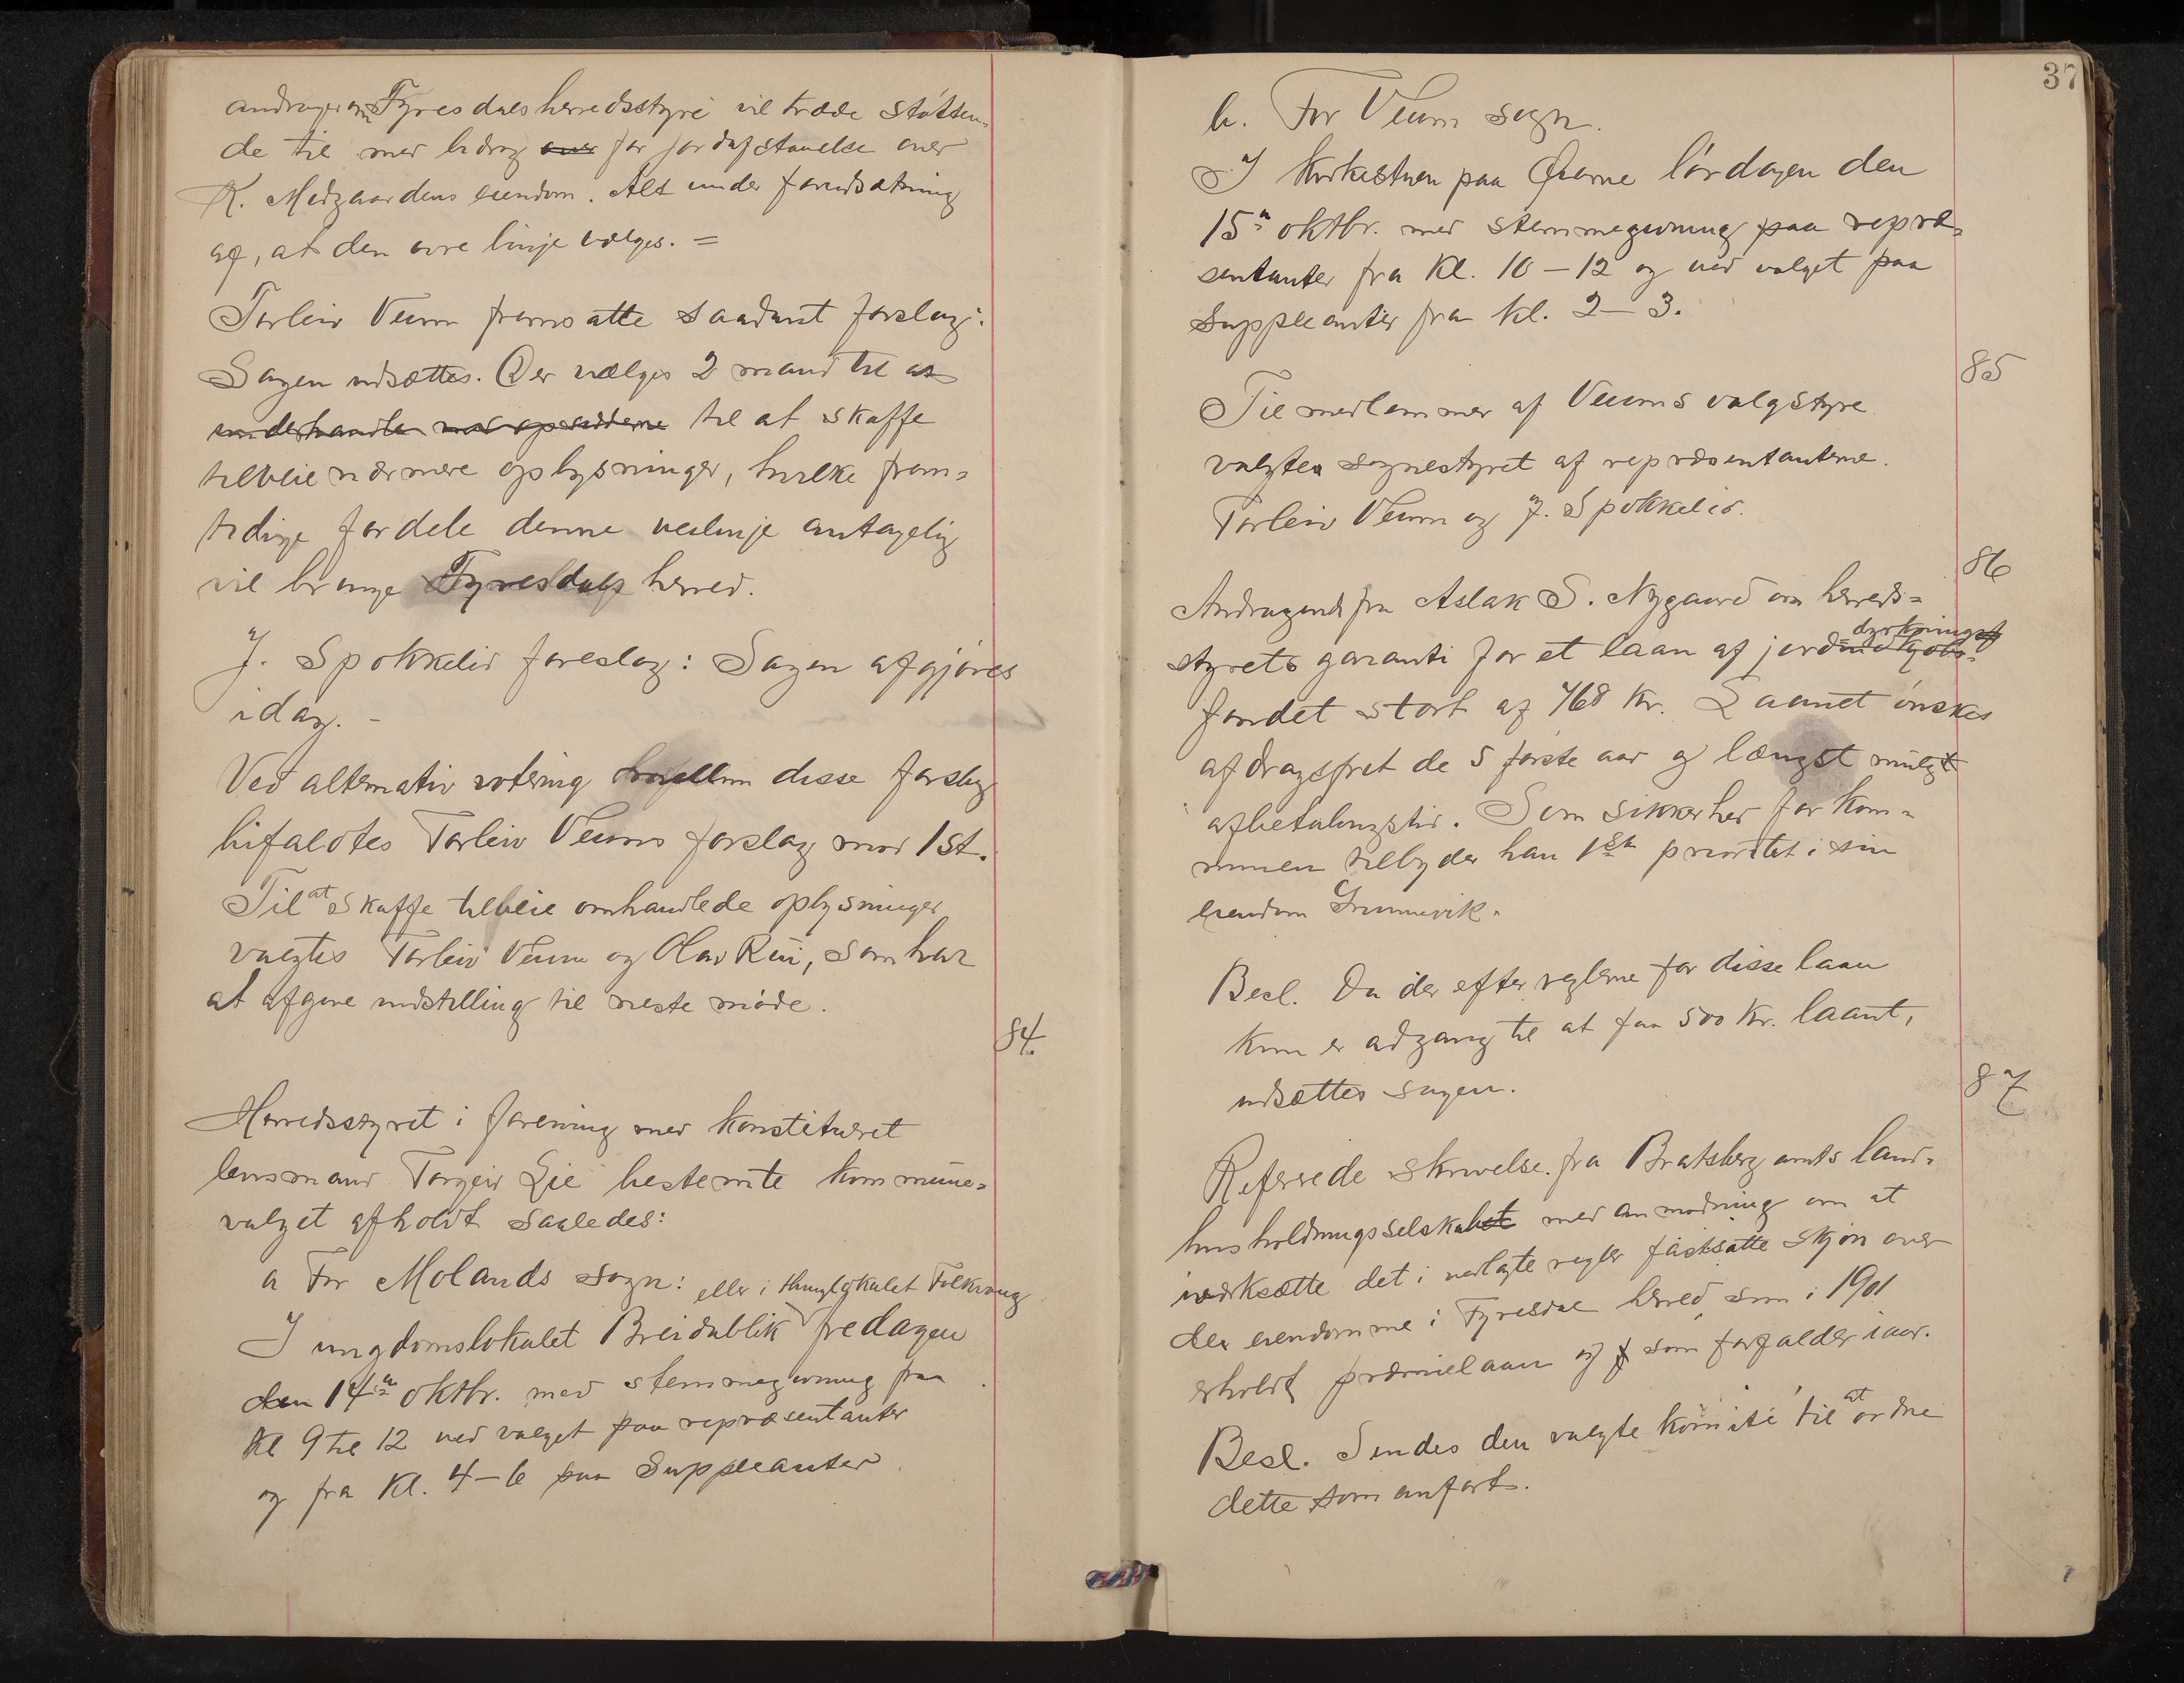 andrager om Tyresdals herredsstyre vil træde støtten-
de til med bidrag over for jordafstaaelse over
K. Midgaardens eiendom. Alt under forudsætning
af, at den øvre linje vælges. =
Torleiv Veum fremsatte saadant forslag:
Sagen udsættes. Der vælges 2 mand til at
underhandle med opsidderne til at skaffe
tilveie nærmere oplysninger, hvilke frem-
tidige fordele denne veilinje antagelig
vil bringe Tyresdals herred.
J. Spokkelid foreslog: Sagen afgjøres
idag. -
Ved alternativ votering mellem disse forslag
bifaldtes Torleiv Veums forslag mod 1 st.
Til at skaffe tilveie omhandlede oplysninger
valgtes Torleiv Veum og Olav Rui, som har
at afgive indstilling til neste møde.
84.
Herredsstyret i forening med konstitueret
lensmand Torgeir Lie bestemte kommune-
valget afholdt saaledes:
a For Molands sogn: eller i thinglokalet Folkvang
I ungdomslokalet Breidablik fredagen
den 14de oktbr. med stemmegivning fra
Kl 9 til 12 ved valget paa repræsentanter
og fra Kl. 4-6 paa Suppleanter
37
b. For Veum sogn.
I kirkestuen paa Øierne lørdagen den
15de oktbr. med stemmegivning paa repræ-
sentanter fra Kl. 10-12 og ved valget paa
Suppleanter fra kl. 2-3.
85
Til medlemmer af Veums valgstyre
valgtes sognestyret af repræsentanterne.
Torleiv Veum og J. Spokkelid.
86
Andragende fra Aslak S. Nygaard om herreds-
dyrknings
styrets garanti for et laan af jordindkjøbs-
fondet stort af 768 kr. Laanet ønskes
afdragsfrit de 5 første aar og længst muligt
afbetalingstid. Som sikkerhed for kom-
munen tilbyder han 1ste prioritet i sin
eiendom Grimmevik.
Besl. Da der efter reglerne for disse laan
kun er adgang til at faa 500 kr. laant,
udsættes sagen.
87
Refererede skrivelse fra Bratsberg amts land-
husholdningsselskabet med anmodning om at
iværksætte det i vedlagte regler fastsatte skjøn over
de eiendomme i Tyresdal herred som i 1901
erholdt præmielaan og som forfalder iaar.
Besl. Sendes den valgte komité til at ordne
dette som anført.